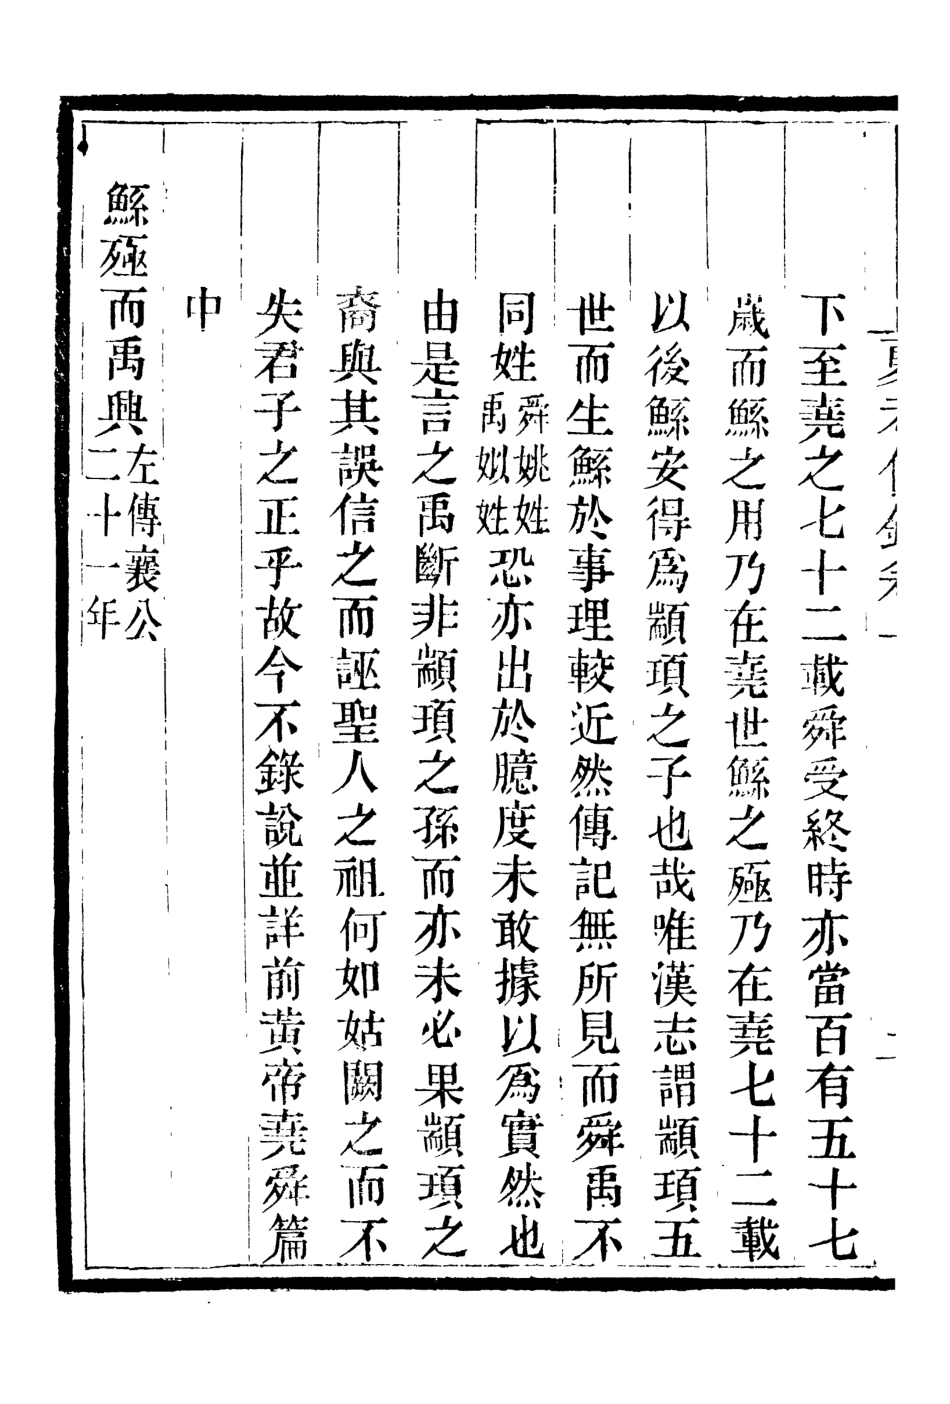 下至堯之七十二載舜受終時亦當百有五十七
歲而鯀之用乃在堯世鯀之殛乃在堯七十二載
以後鯀安得爲顓頊之子也哉唯漢志謂顓頊五
世而生鯀於事理較近然傳記無所見而舜禹不
同姓舜姚姓禹姒姓恐亦出於臆度未敢據以爲實然也
由是言之禹斷非顓頊之孫而亦未必果顓頊之
裔與其誤信之而誣聖人之祖何如姑闕之而不
失君子之正乎故今不錄說並詳前黃帝堯舜篇
中
鯀殛而禹興左傳襄公二十一年